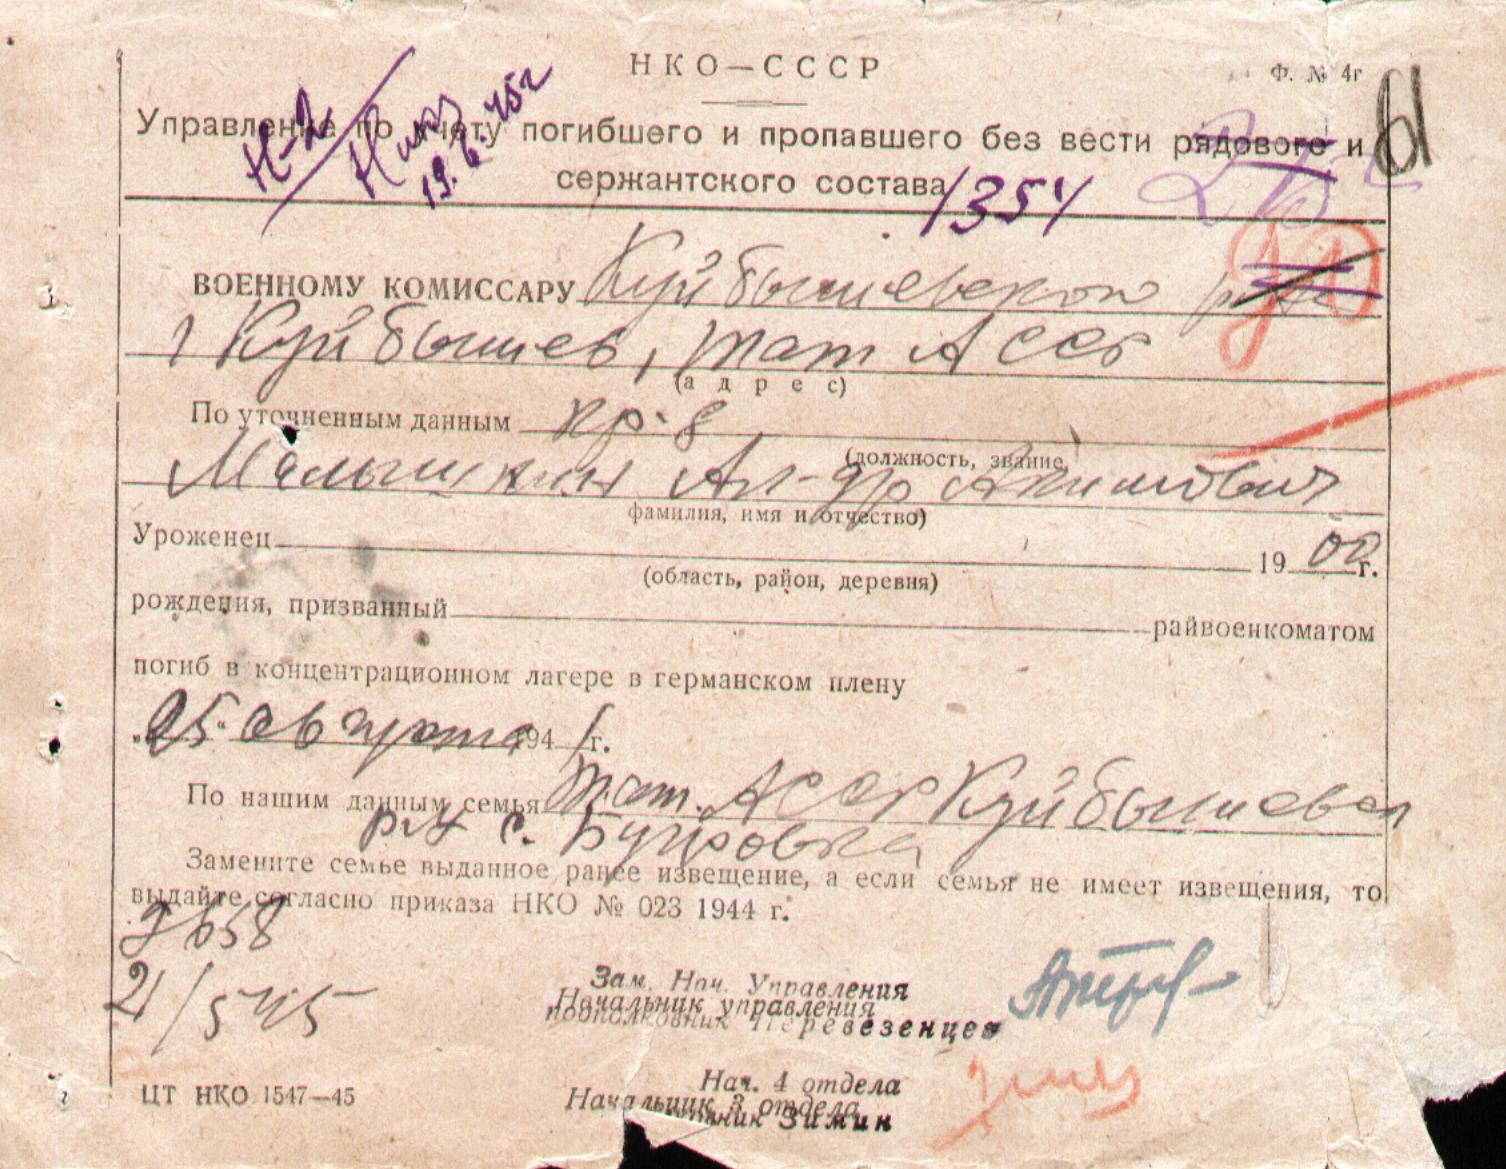 НКО—СССР
Ф. № 4г
61
Н-2
19.6.45г
Управление по учету погибшего и пропавшего без вести рядового и
сержантского состава
1354
ВОЕННОМУ КОМИССАРУ Куйбышевского
г Куйбышев, тат АССР
(адрес)
По уточненным данным кр-ц
(должность, звание,
Малышкин Ал-др Акимович
фамилия, имя и отчество)
Уроженец 1900 г.
(область, район, деревня)
рождения, призванный райвоенкоматом
погиб в концентрационном лагере в германском плену
„25“ августа 1941 г.
По нашим данным семья Тат. АССР Куйбышевск
р-н с. Бутровка
Замените семье выданное ранее извещение, а если семья не имеет извещения, то
выдайте согласно приказа НКО № 023 1944 г.
9658
21/545
Зам. Нач. Управления
Начальник управления
подполковник Перевезенцев
Нач. 4 отдела
Начальник 3 отдела
Зимин
ЦТ НКО 1547—45